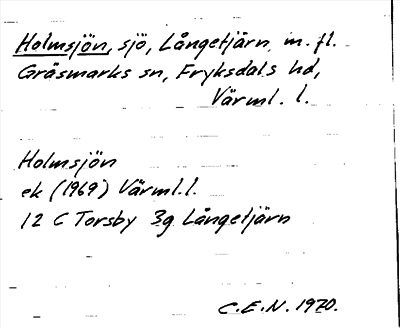 Holmsjön, sjö, Långetjärn m. fl.
Gräsmarks sn, Fryksdals hd,
Värml. l.
Holmsjön
ek (1969) Värml. l.
12 C Torsby 3g Långetjärn
C.E.N. 1970.